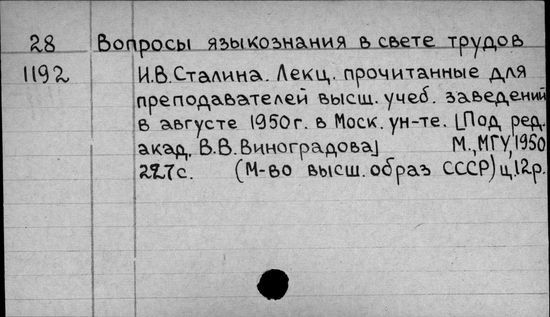 28 Вопросы языкознания в свете трудов
1192 И.В.Сталина. Лекц. прочитанные для
преподавателей высш. учеб. заведений
в августе 1950г. в Моск. ун-те. [Под ред.
акад. В.В.Виноградова] М.,МГУ,1950
227с. (М-во высш. образ СССР) ц.12р.